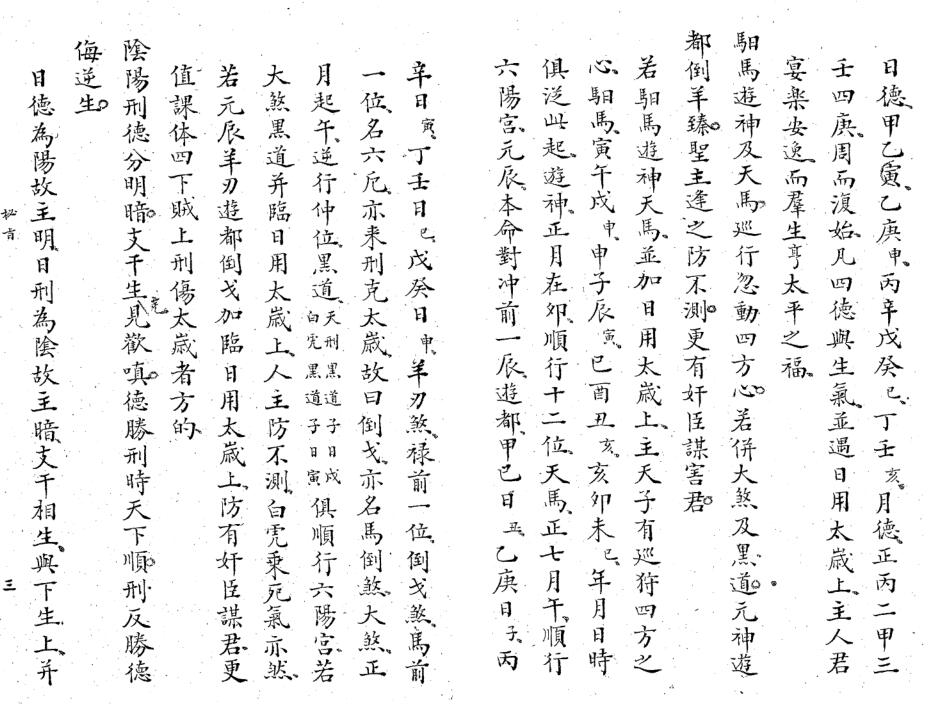 日德甲乙寅乙庚申丙辛戊癸巳丁壬亥月德正丙二甲三
壬四庚周而復始凡四德與生氣並遇日用太歲上主人君
宴樂安逸而羣生亨太平之福
馹馬遊神及天馬巡行忽動四方心若併大煞及黑道元神遊
都倒羊臻聖主逢之防不測更有奸臣謀害君
若馹馬遊神天馬並加日用太歲上主天子有巡狩四方之
心馹馬寅午戌申申子辰寅巳酉丑亥亥卯未巳年月日時
俱從此起遊神正月在夘順行十二位天馬正七月午順行
六陽宮元辰本命對冲前一辰遊都甲巳日丑乙庚日子丙
辛日寅丁壬日巳戊癸日申羊刃煞禄前一位倒戈煞馬前
一位名六厄亦来刑克太歲故曰倒戈亦名馬倒煞大煞正
月起午逆行仲位黑道天刑黑道子日戌白虎黑道子日寅俱順行六陽宮若
大煞黑道并臨日用太歲上人主防不測白虎乗死氣亦然
若元辰羊刃遊都倒戈加臨日用太歲上防有奸臣謀君更
值課体四下賊上刑傷太歲者方的
陰陽刑德分明暗支干生克見歡嗔德勝刑時天下順刑反勝德
侮逆生
日德為陽故主明日刑為陰故主暗支干相生與下生上并
秘旨
三